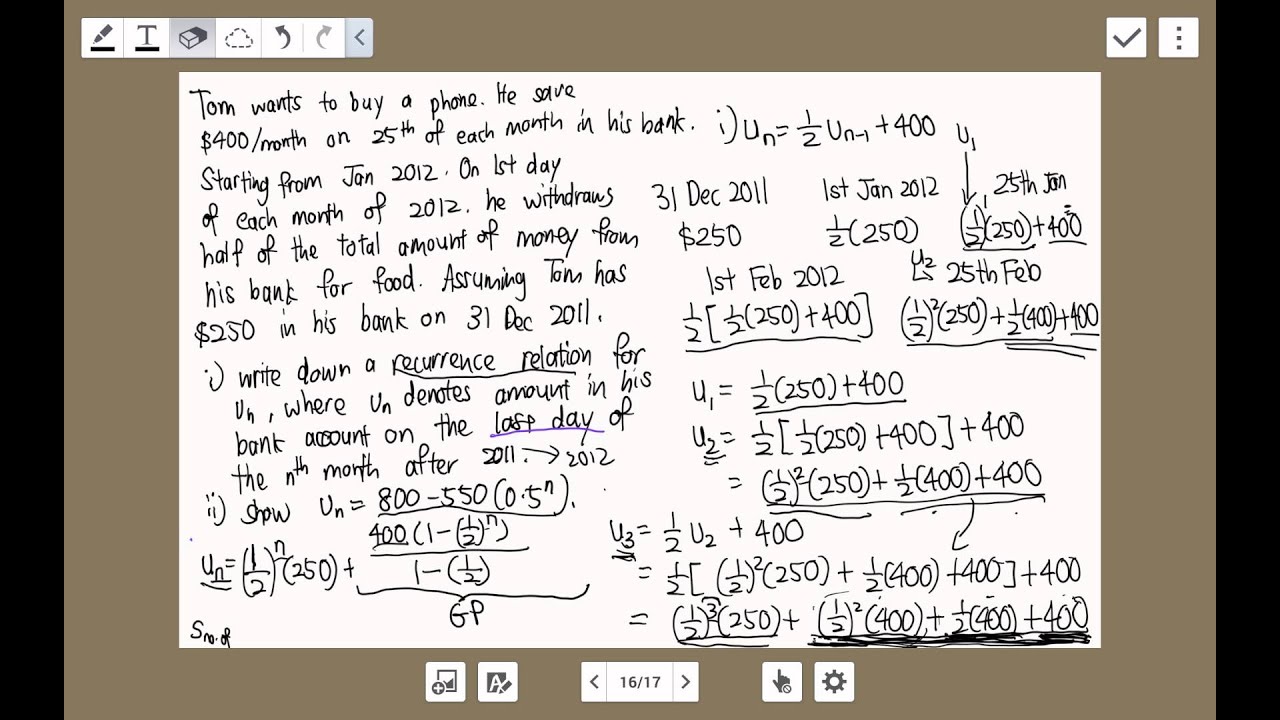 Tom wants to buy a phone. He save
$400/month on 25th of each month in his bank.
Starting from Jan 2012. On 1st day
of each month of 2012. he withdraws
half of the total amount of money from
his bank for food. Assuming Tom has
$250 in his bank on 31 Dec 2011.
i) write down a recurrence relation for
Un, where Un denotes amount in his
bank account on the last day of
the nth month after 2011. → 2012
ii) show Un = 800 - 550 (0.5^n).
Un = (1/2)^n (250) + 400 (1 - (1/2)^n) / 1 - (1/2)
GP
Sno. of
i) Un = 1/2 Un-1 + 400 U1
31 Dec 2011 1st Jan 2012 25th Jan
$250 1/2 (250) (1/2)^1 (250) + 400
1st Feb 2012 U2 25th Feb
1/2 [1/2 (250) + 400] (1/2)^2 (250) + 1/2 (400) + 400
U1 = 1/2 (250) + 400
U2 = 1/2 [1/2 (250) + 400] + 400
= (1/2)^2 (250) + 1/2 (400) + 400
U3 = 1/2 U2 + 400
= 1/2 [(1/2)^2 (250) + 1/2 (400) + 400] + 400
= (1/2)^3 (250) + (1/2)^2 (400) + 1/2 (400) + 400
16/17